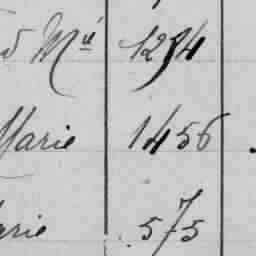 d Mie 1294
Marie 1456
arie 575